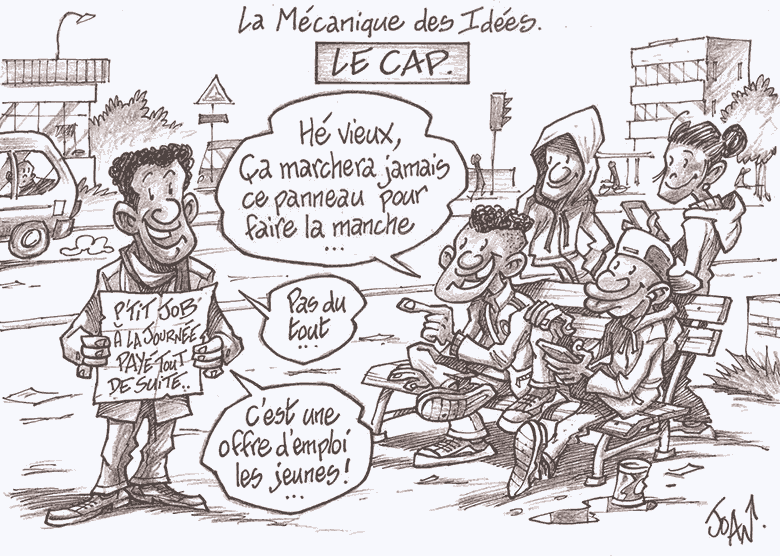 La Mécanique des Idées.
LE CAP.
Hé vieux,
Ça marchera jamais
ce panneau pour
faire la manche
...
Pas du
tout
....
C'est une
offre d'emploi
les jeunes !
...
P'TIT JOB
À LA JOURNÉE
PAYÉ TOUT
DE SUITE..
JOAN